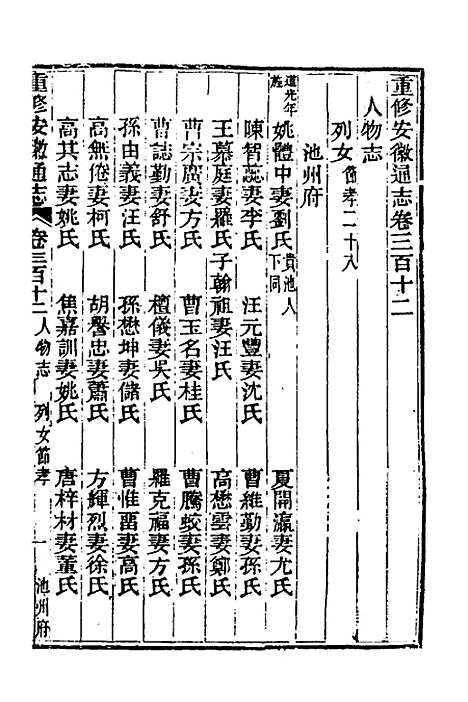 重修安徽通志卷三百十二
人物志
列女節孝二十八
池州府
道光年旌 姚體中妻劉氏貴池人下同 夏開瀛妻尤氏
陳智蕊妻李氏 汪元豐妻沈氏 曹維勤妻孫氏
王慕庭妻羅氏子翰祖妻汪氏 高懋雲妻鄭氏
曹宗廣妻方氏 曹玉名妻桂氏 曹騰蛟妻孫氏
曹誌勤妻舒氏 檀儀妻吳氏 羅克福妻方氏
孫由義妻汪氏 孫懋坤妻儲氏 曹惟番妻高氏
高無倦妻柯氏 胡譽忠妻蕭氏 方輝烈妻徐氏
高其志妻姚氏 焦嘉訓妻姚氏 唐梓材妻董氏
重修安徽通志 卷三百十二人物志 列女節孝 一 池州府